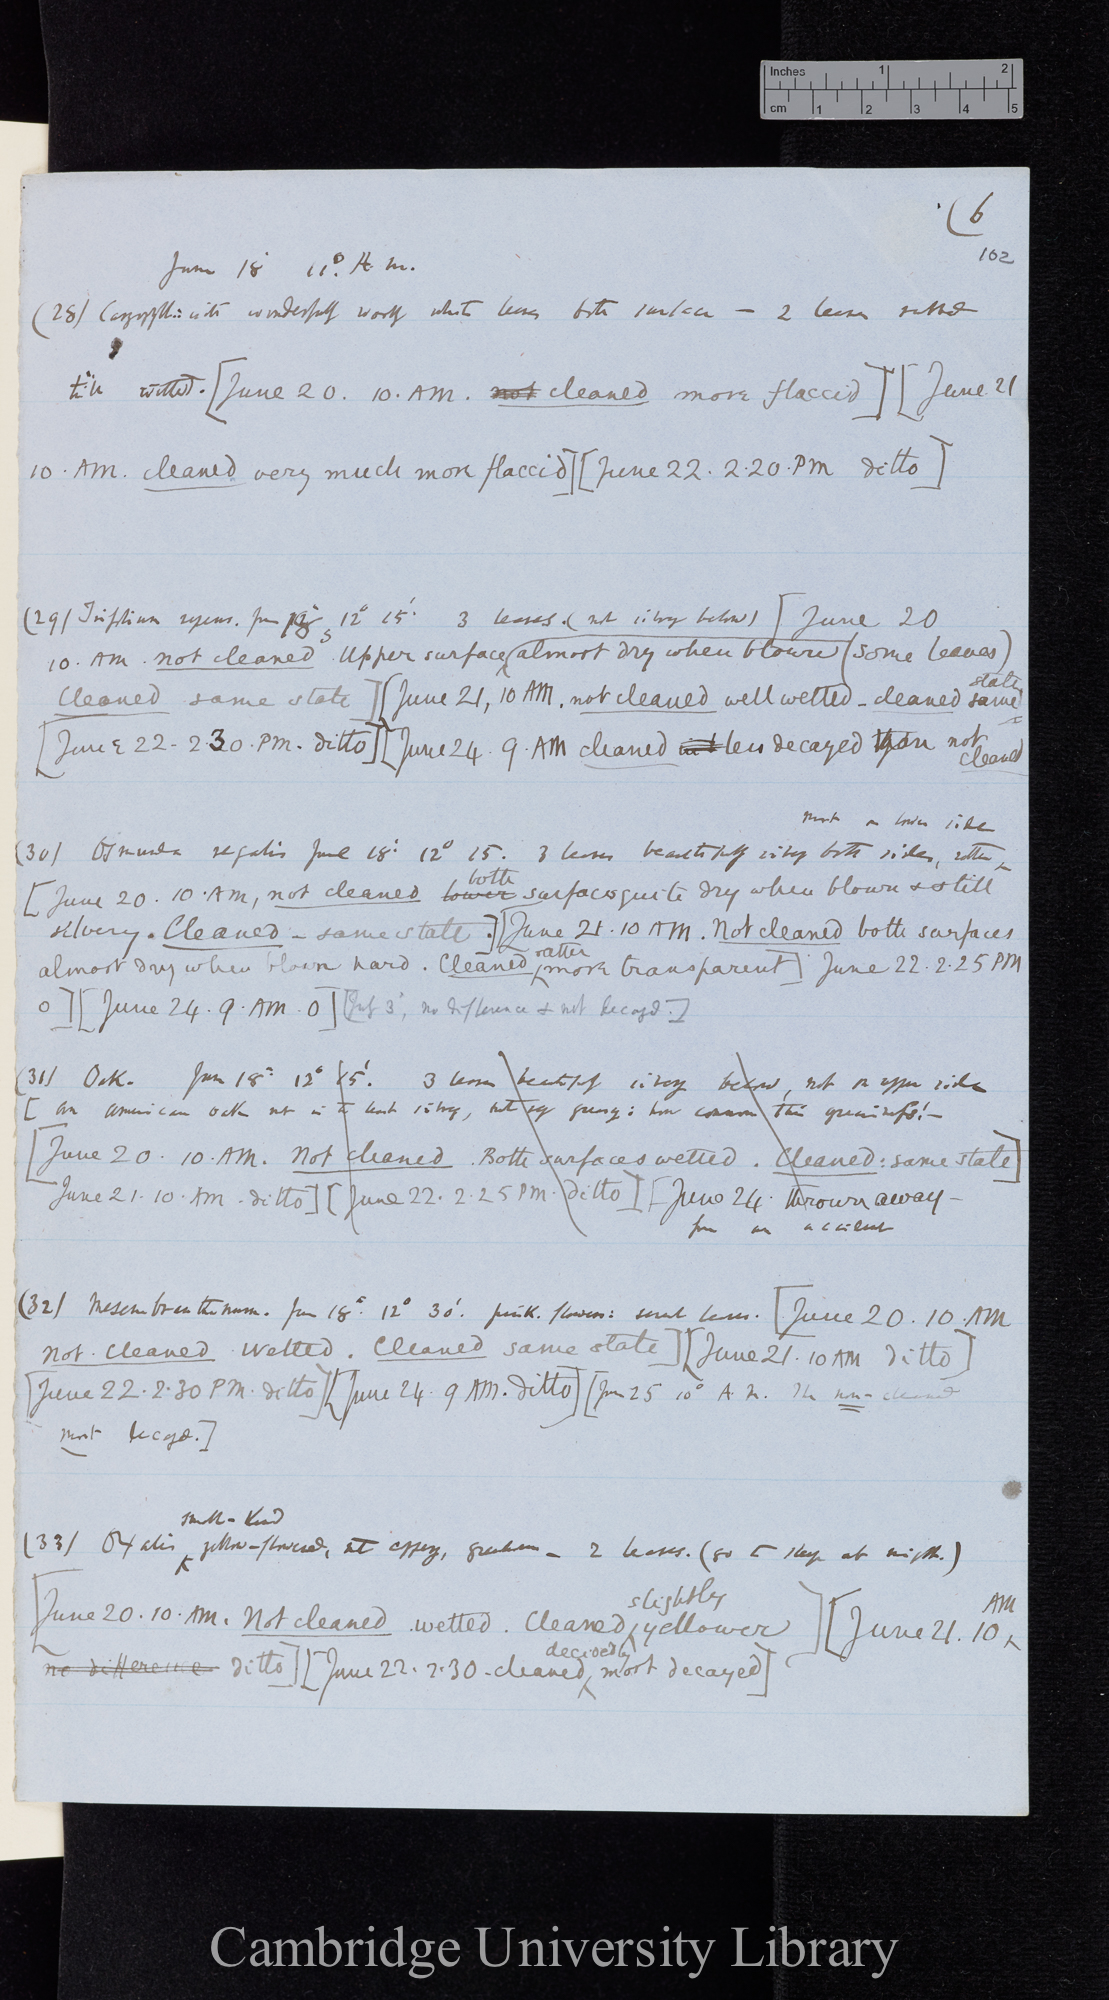 Inches 1 2
cm 1 2 3 4 5
(6
102
June 18 11° A. m.
(28) with wonderfully woolly white leaves both surfaces — 2 leaves rubbed
till wetted. [June 20. 10. AM. not cleaned more flaccid] [June 21
10. AM. cleaned very much more flaccid] [June 22. 2.20. PM ditto]
(29) Trifolium repens. June 12° 15' 3 leaves. (not silvery below) [June 20
10. AM. not cleaned. Upper surface (almost dry when blown (some leaves)
Cleaned same state] [June 21, 10 AM. not cleaned well wetted - cleaned same state
[June 22 - 2.30. PM. ditto] [June 24. 9. AM cleaned less decayed than not cleaned
most on lower side
(30) Osmunda regalis June 18: 12° 15. 3 leaves beautifully silvery both sides, rather
[June 20. 10. AM, not cleaned lower both surfaces quite dry when blown & still
silvery. Cleaned - same state.] [June 21. 10 AM. Not cleaned both surfaces
almost dry when blown hard. Cleaned rather more transparent] June 22. 2.25 PM
0] [June 24. 9. AM. 0] [July 3', no difference & not decayed.]
(31) Oak. June 18: 12° 15'. 3 leaves beautifully silvery below, not on upper side
[An American oak not in the least silvery, not greasy: how common this greasiness! —
[June 20. 10. AM. Not cleaned. Both surfaces wetted. Cleaned: same state]
June 21. 10. AM - ditto] [June 22. 2.25 PM. ditto] [June 24. thrown away -
from an accident
(32) Mesembryanthemum. June 18: 12° 30'. pink flowers: small leaves. [June 20. 10. AM
not cleaned wetted. Cleaned same state] [June 21. 10 AM ditto]
[June 22. 2.30 PM. ditto] [June 24. 9 AM. ditto] [June 25 10° A. m. The non-cleaned
most decayed.]
small-kind
(33) Oxalis yellow-flowered, not creeping, - 2 leaves. (go to sleep at night.)
[June 20. 10. AM. Not cleaned wetted. Cleaned slightly yellower] [June 21. 10 AM
no difference ditto] [June 22. 2.30 - cleaned decidedly most decayed]
Cambridge University Library